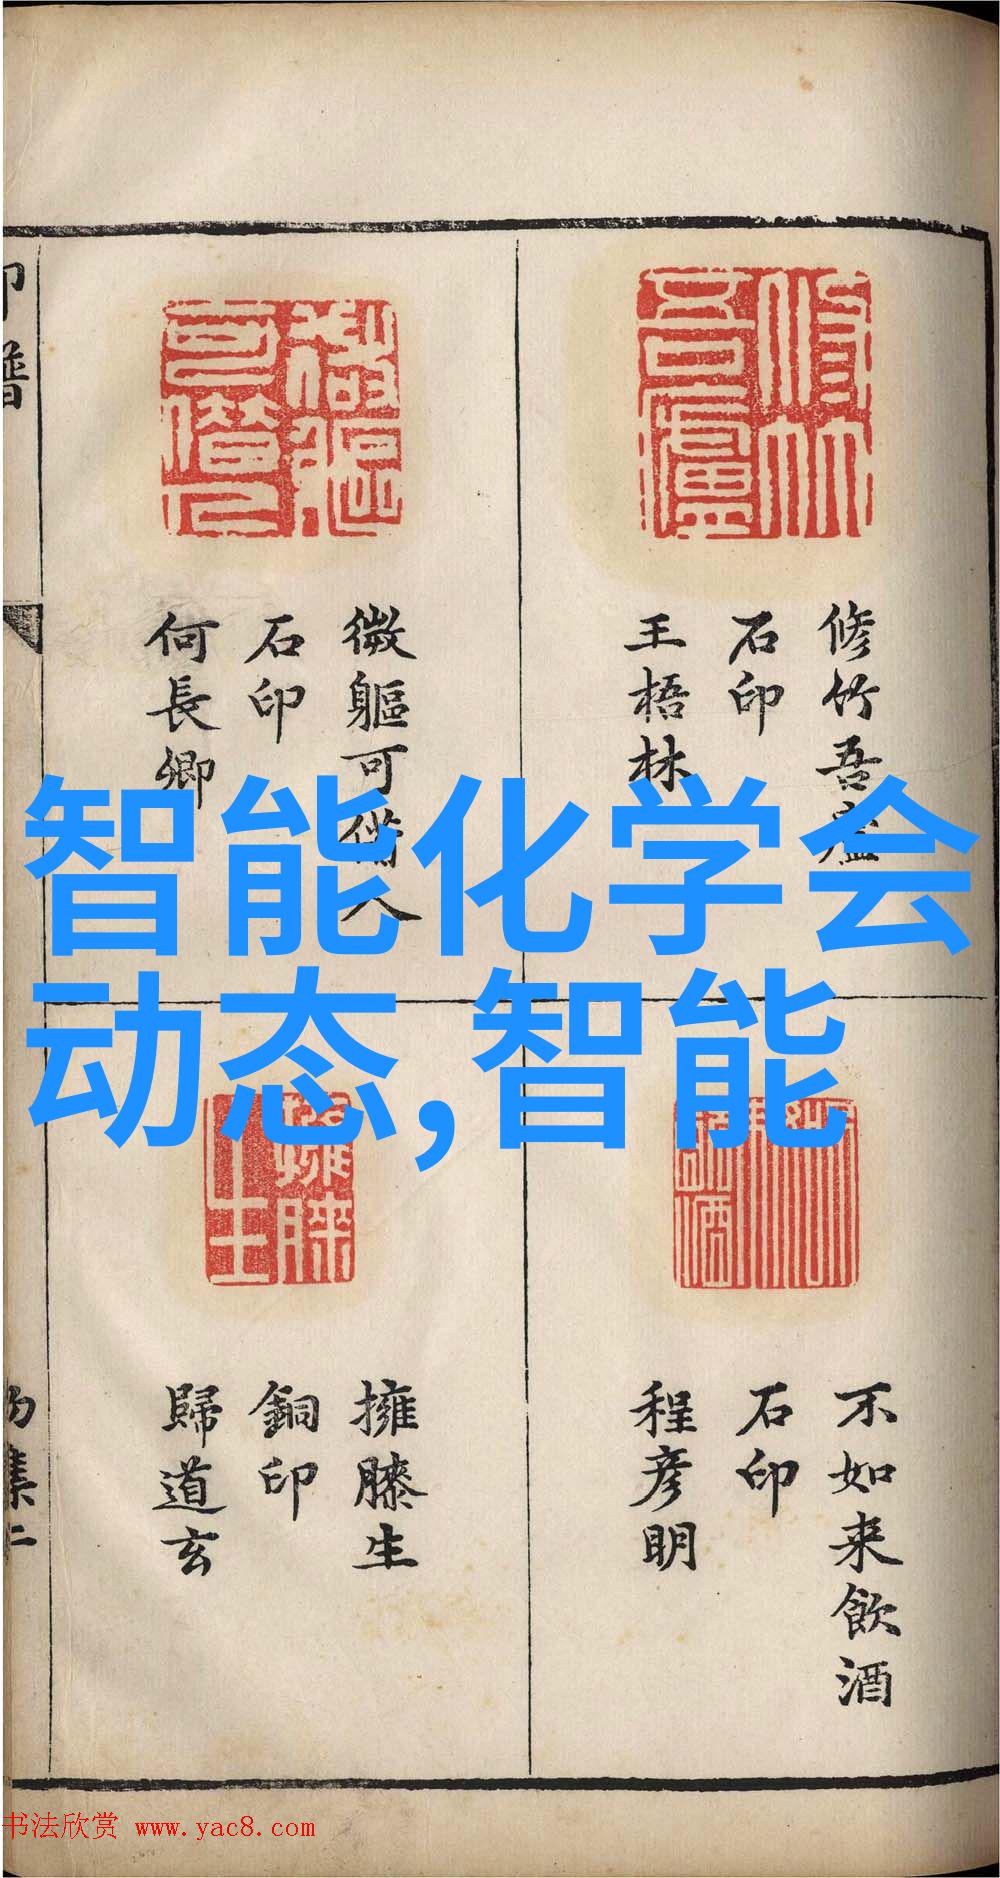 智能化学会
动态,智能
修竹吾廬
修竹吾廬
石印
王梧林
微軀可人
石印
何長卿
不如来飲酒
石印
程彦明
擁膝生
擁膝生
銅印
歸道玄
印譜
集二
书法欣赏 www.yac8.com